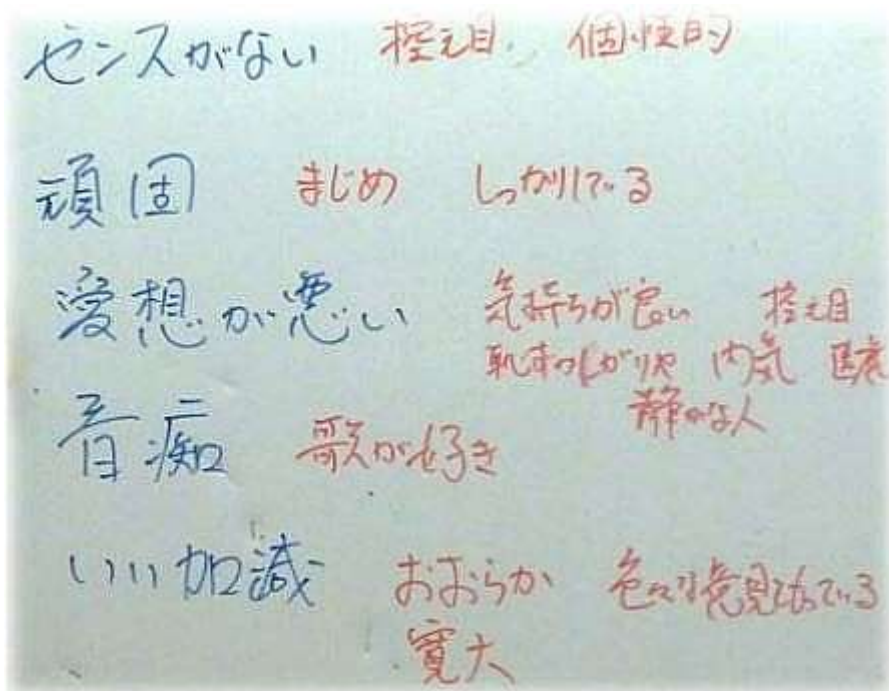 センスがない 控え目 個性的
頑固 まじめ しっかりしている
愛想が悪い 気持ちが良い 控え目
恥ずかしがりや 内気
静かな人
音痴 歌が好き
いい加減 おおらか 色々な意見をもっている
寛大